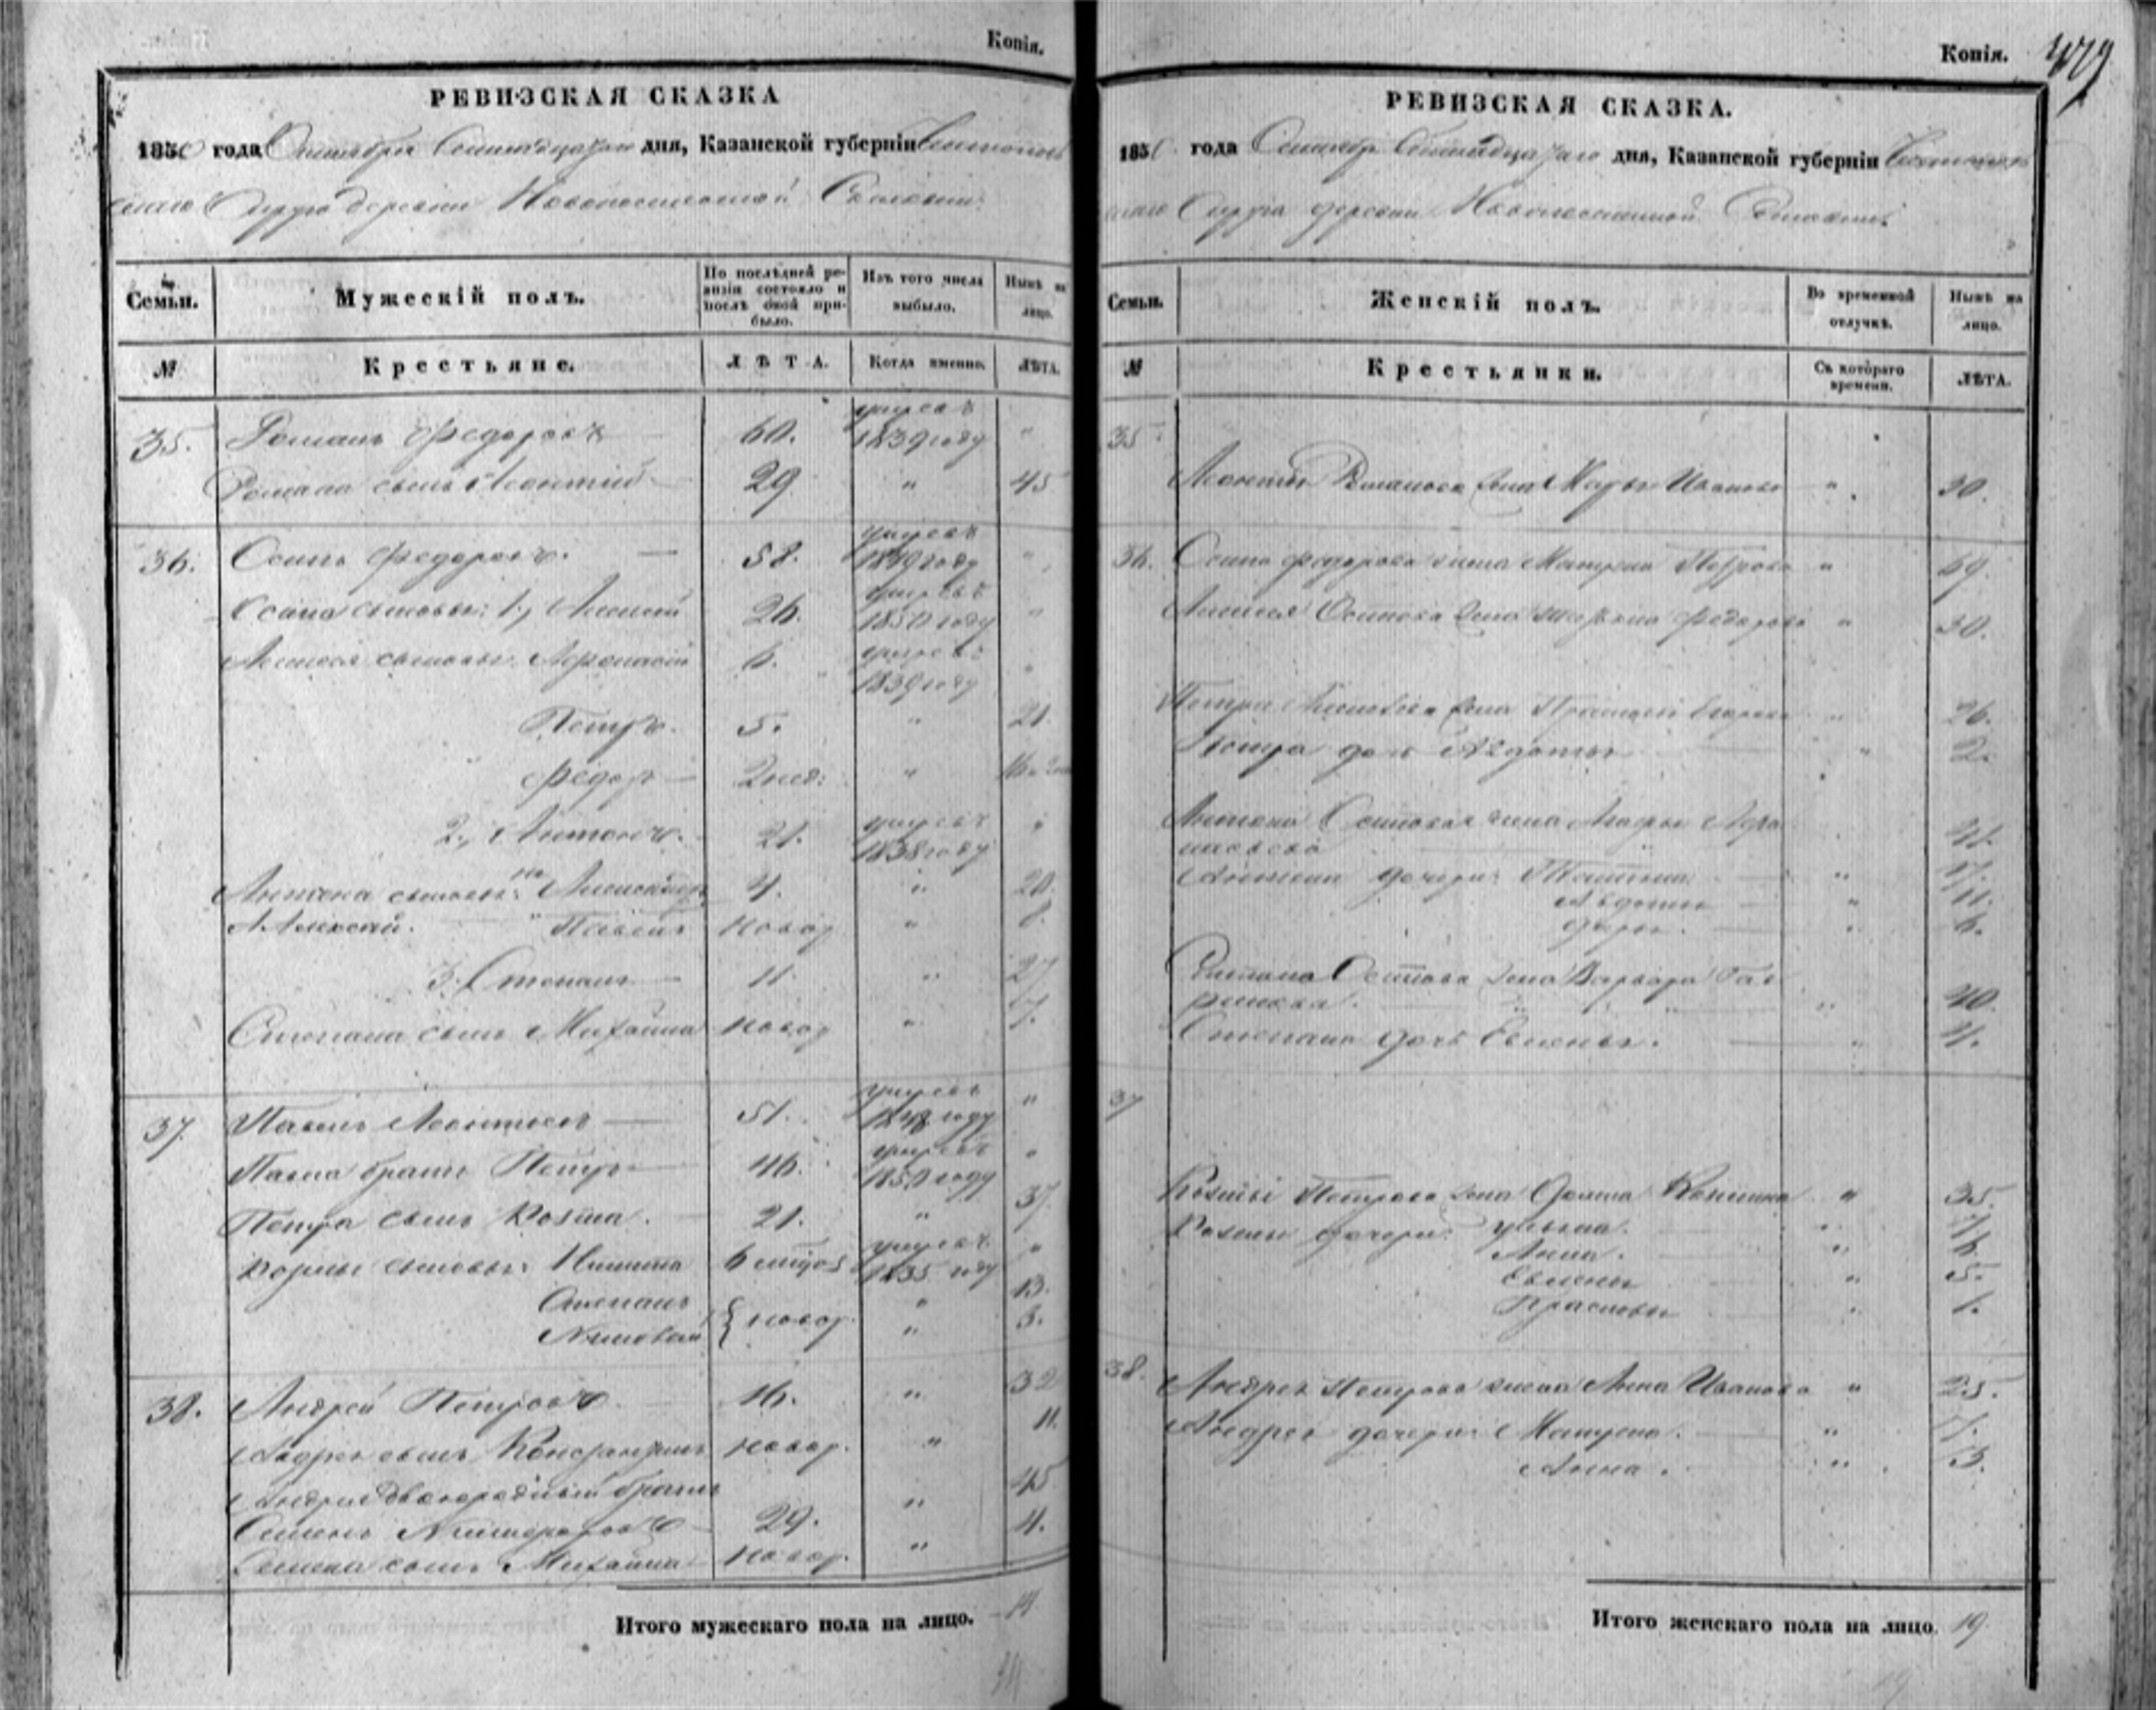 Копія.
РЕВИЗСКАЯ СКАЗКА
1850 года Октября Семнадцатаго дня, Казанской губерніи
Округа деревни Новопоселенной
Семьи.
Мужескій полъ.
По послѣдней ре-
визіи состояло и
послѣ оной при-
было.
Изъ того числа
выбыло.
Нынѣ на
лицо.
№
Крестьяне.
ЛѢТА.
Когда именно.
ЛѢТА.
35. Романъ Федоровъ 60. умеръ 1839 году "
Романа сынъ Леонтій 29 " 45
36. Осипъ Федоровъ. 58. умеръ 1849 году "
Осипа сыновья: 1, Алексей 26. умеръ 1850 году "
Алексея сыновья: Афонасій 6. умеръ 1839 году "
Петръ. 5. " 21.
Федоръ 2 нед: " 16
2, Антонъ. 21. умеръ 1838 году "
Антона сыновья: Александръ 4. " 20.
Алексей. Павелъ новор " 8.
3. Степанъ 11. " 27
Степана сынъ Михайла новор " 7.
37. Павелъ Леонтьевъ 51. умеръ 1848 году "
Павла братъ Петръ 46. умеръ 1850 году "
Петра сынъ Козма. 21. " 37.
Козмы сыновья: Никита 6 умеръ 1835 году "
Степанъ " 13.
новор.
Николай " 3.
38. Андрей Петровъ 16. " 32
Андрея сынъ Константинъ новор. " 11.
Андрея двоюродный братъ
Семенъ Никифоровъ 29. " 45
Семена сынъ Михайла новор. " 4.
Итого мужескаго пола на лицо. 14
14
Копія.
РЕВИЗСКАЯ СКАЗКА.
1850 года дня, Казанской губерніи
Округа деревни Новопоселенной
Семьи.
Женскій полъ.
Во временной
отлучкѣ.
Нынѣ на
лицо.
№
Крестьянки.
Съ котораго
времени.
ЛѢТА.
35.
Леонтья Романова жена Марья Иванова " 30.
36. Осипа Федорова жена Матрена Петрова " 69.
Алексея Осипова жена Федорова " 30.
Петра Алексеева жена Егорова " 26.
Петра дочь Авдотья " 2.
Антона Осипова жена Афа
насьева 41.
Антона дочери: " 17.
Авдотья " 11.
Дарья. " 6.
Степана Осипова жена Варвара Гав
рилова. " 40.
Степана дочь Евгенья. " 4.
37
Козмы Петрова жена " 35.
Козмы дочери: Ульяна. "
Анна. "
Евгенья " 5.
Прасковья " 1.
38. Андрея Петрова жена Анна Иванова " 25.
Андрея дочери: Матрена. " 7.
Анна. " 3.
Итого женскаго пола на лицо. 19
19